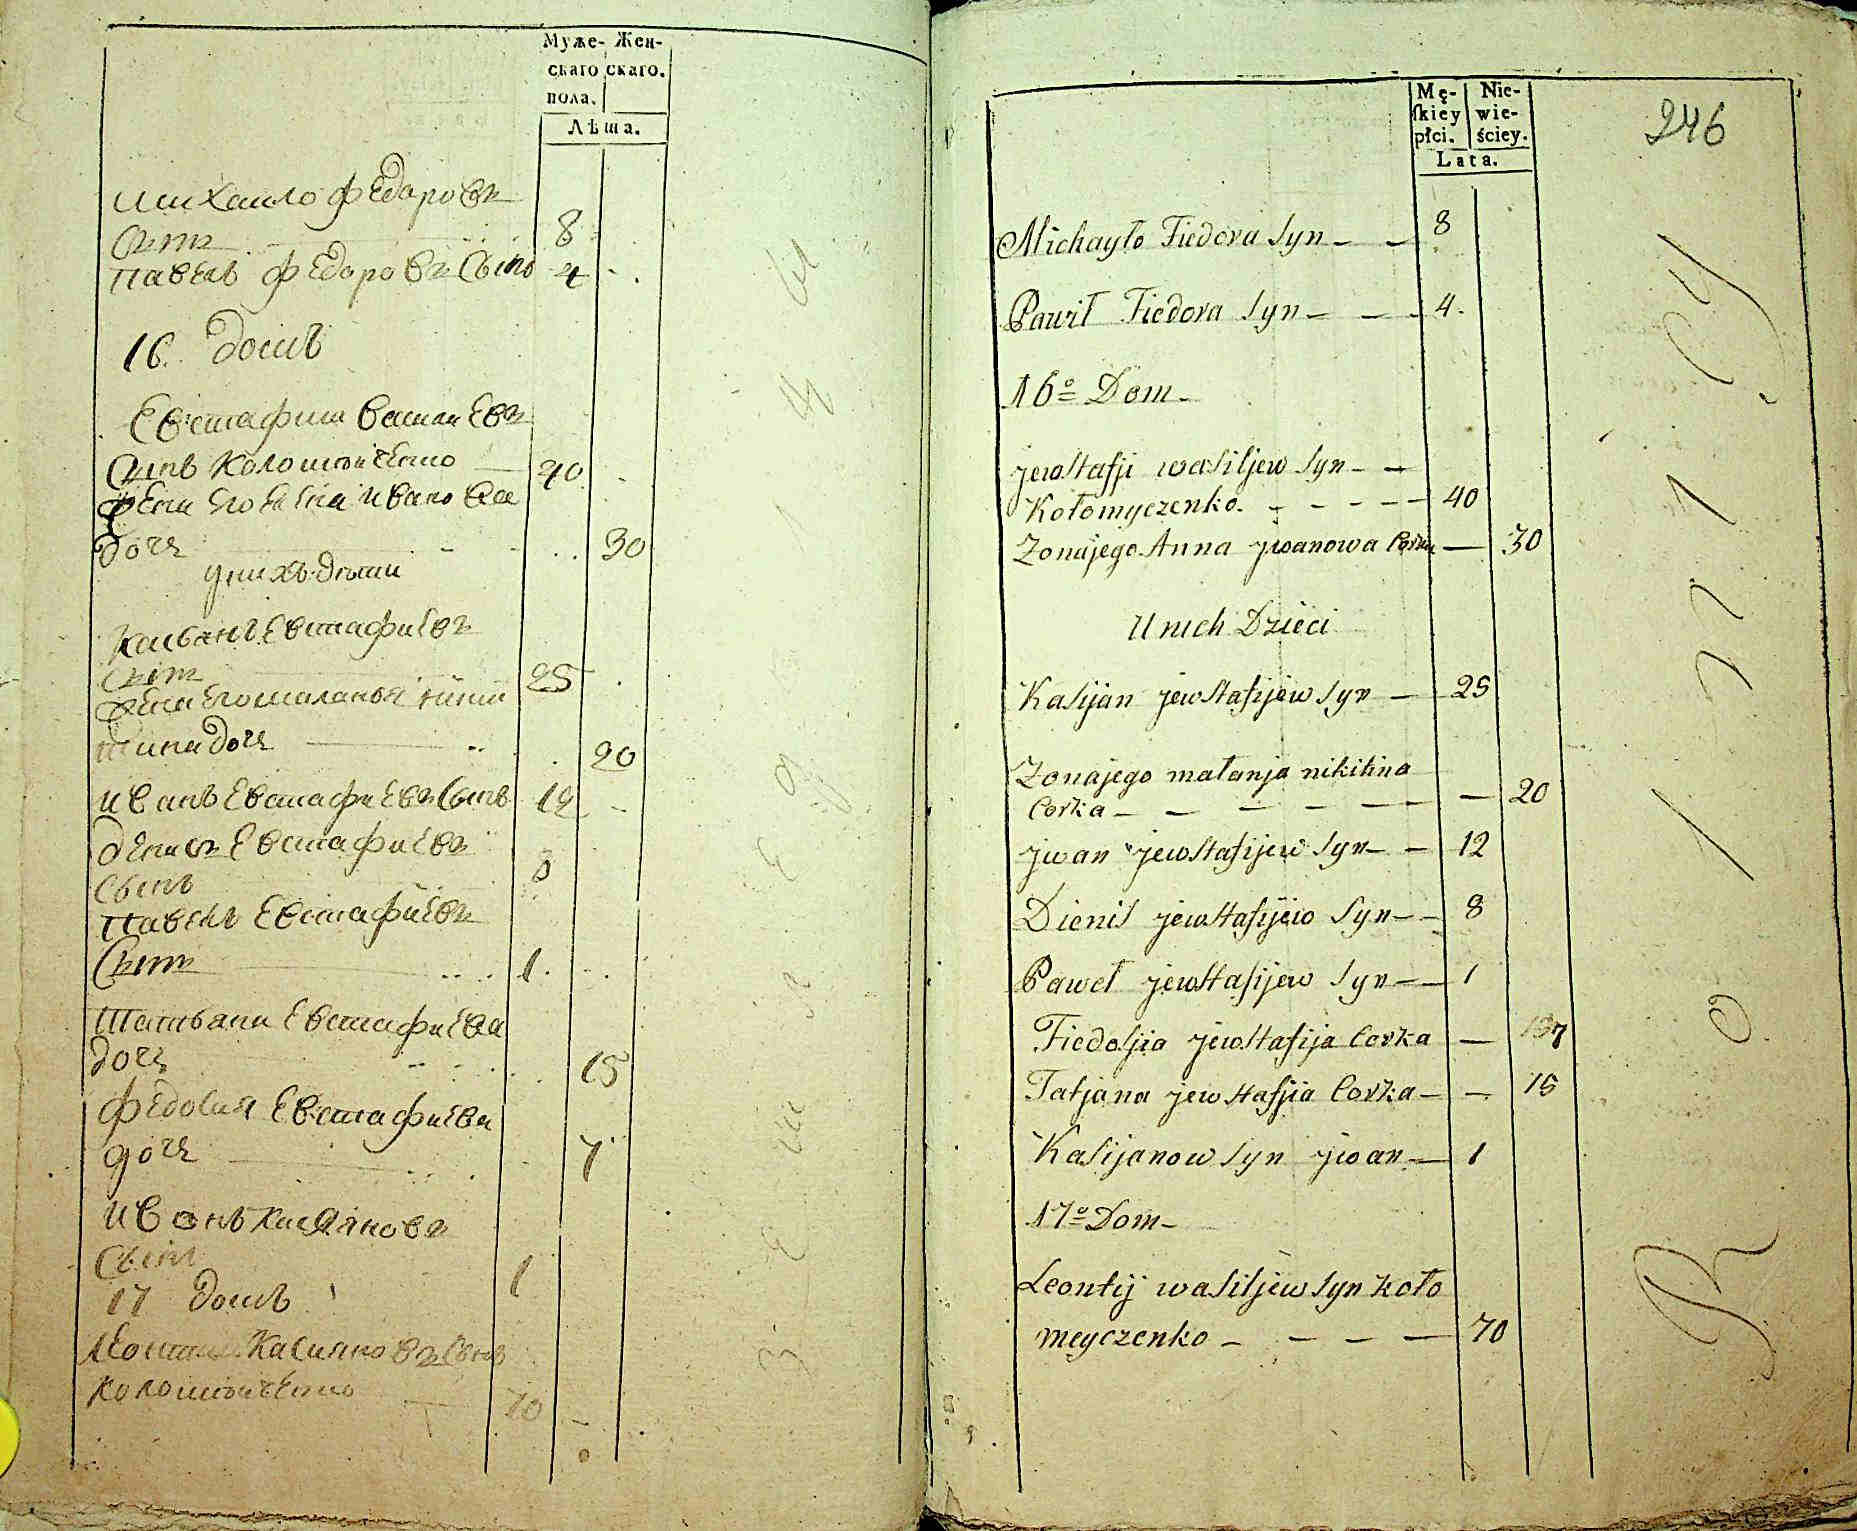 Муже- Жен-
скаго скаго.
пола.
Лѣта.
Михаило Федоровъ
Сынъ 8
Павелъ Федоровъ Сынъ 4
16. Домъ
Евстафии Василевъ
Сынъ Коломыйченко 40
Ивановa
дочь 30
у них дѣти
Касьянъ Евстафиевъ
Сынъ 25
Жена Его Маланья Ники
тина дочь 20
Иванъ Евстафиевъ Сынъ 12
Денисъ Евстафиевъ
Сынъ 8
Павелъ Евстафиевъ
Сынъ 1.
Татьяна Евстафиева
дочь 15
Федосия Евстафиева
дочь 7
Иванъ Касияновъ
Сынъ 1
17 Домъ
Касияновъ Сынъ
Коломыйченко 70
Mę- Nie-
ſkiey wie-
płci. ściey.
Lata.
246
Michayło Fiedora Syn — — 8
Pawił Fiedora Syn — — 4.
16o Dom —
jewstafji wasiljew Syn — —
Kołomyczenko. — — — — 40
Zonajego Anna jwanowa Corka — 30
U nich Dzieci
Kasijan jewstafijew Syn — 25
Zonajego małanja nikitina
Corka — — — — — — 20
jwan jewstafijew Syn — — 12
Dienis jewstafijew Syn — — 8
Paweł jewstafijew Syn — — 1
Fiedosjia jewstafija Corka — 7
Tatjana jewstafjia Corka — — 15
Kasijanow Syn jwan — 1
17o Dom —
Leontij wasiljew Syn koło
meyczenko — — — — 70